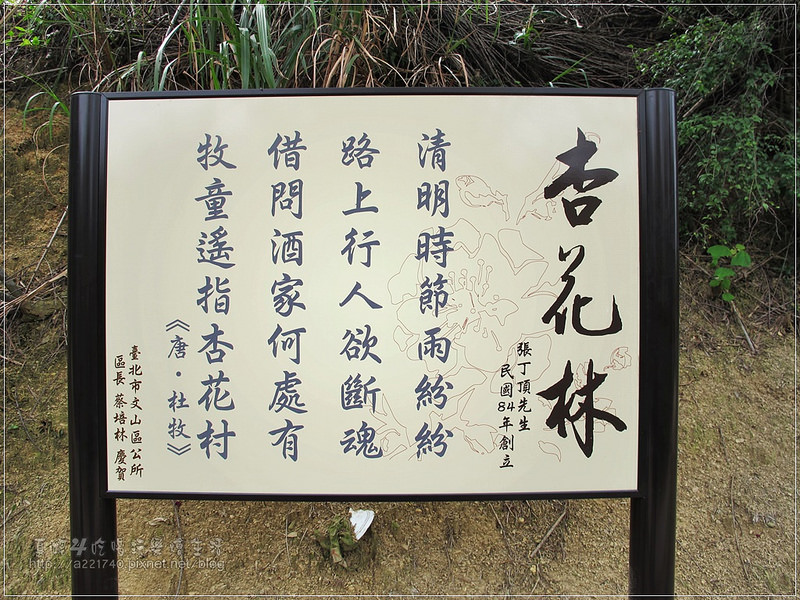 杏花林
張丁頂先生
民國84年創立
清明時節雨紛紛
路上行人欲斷魂
借問酒家何處有
牧童遙指杏花村
《唐·杜牧》
臺北市文山區公所
區長 蔡培林 慶賀
http://a221740.pixnet.net/blog